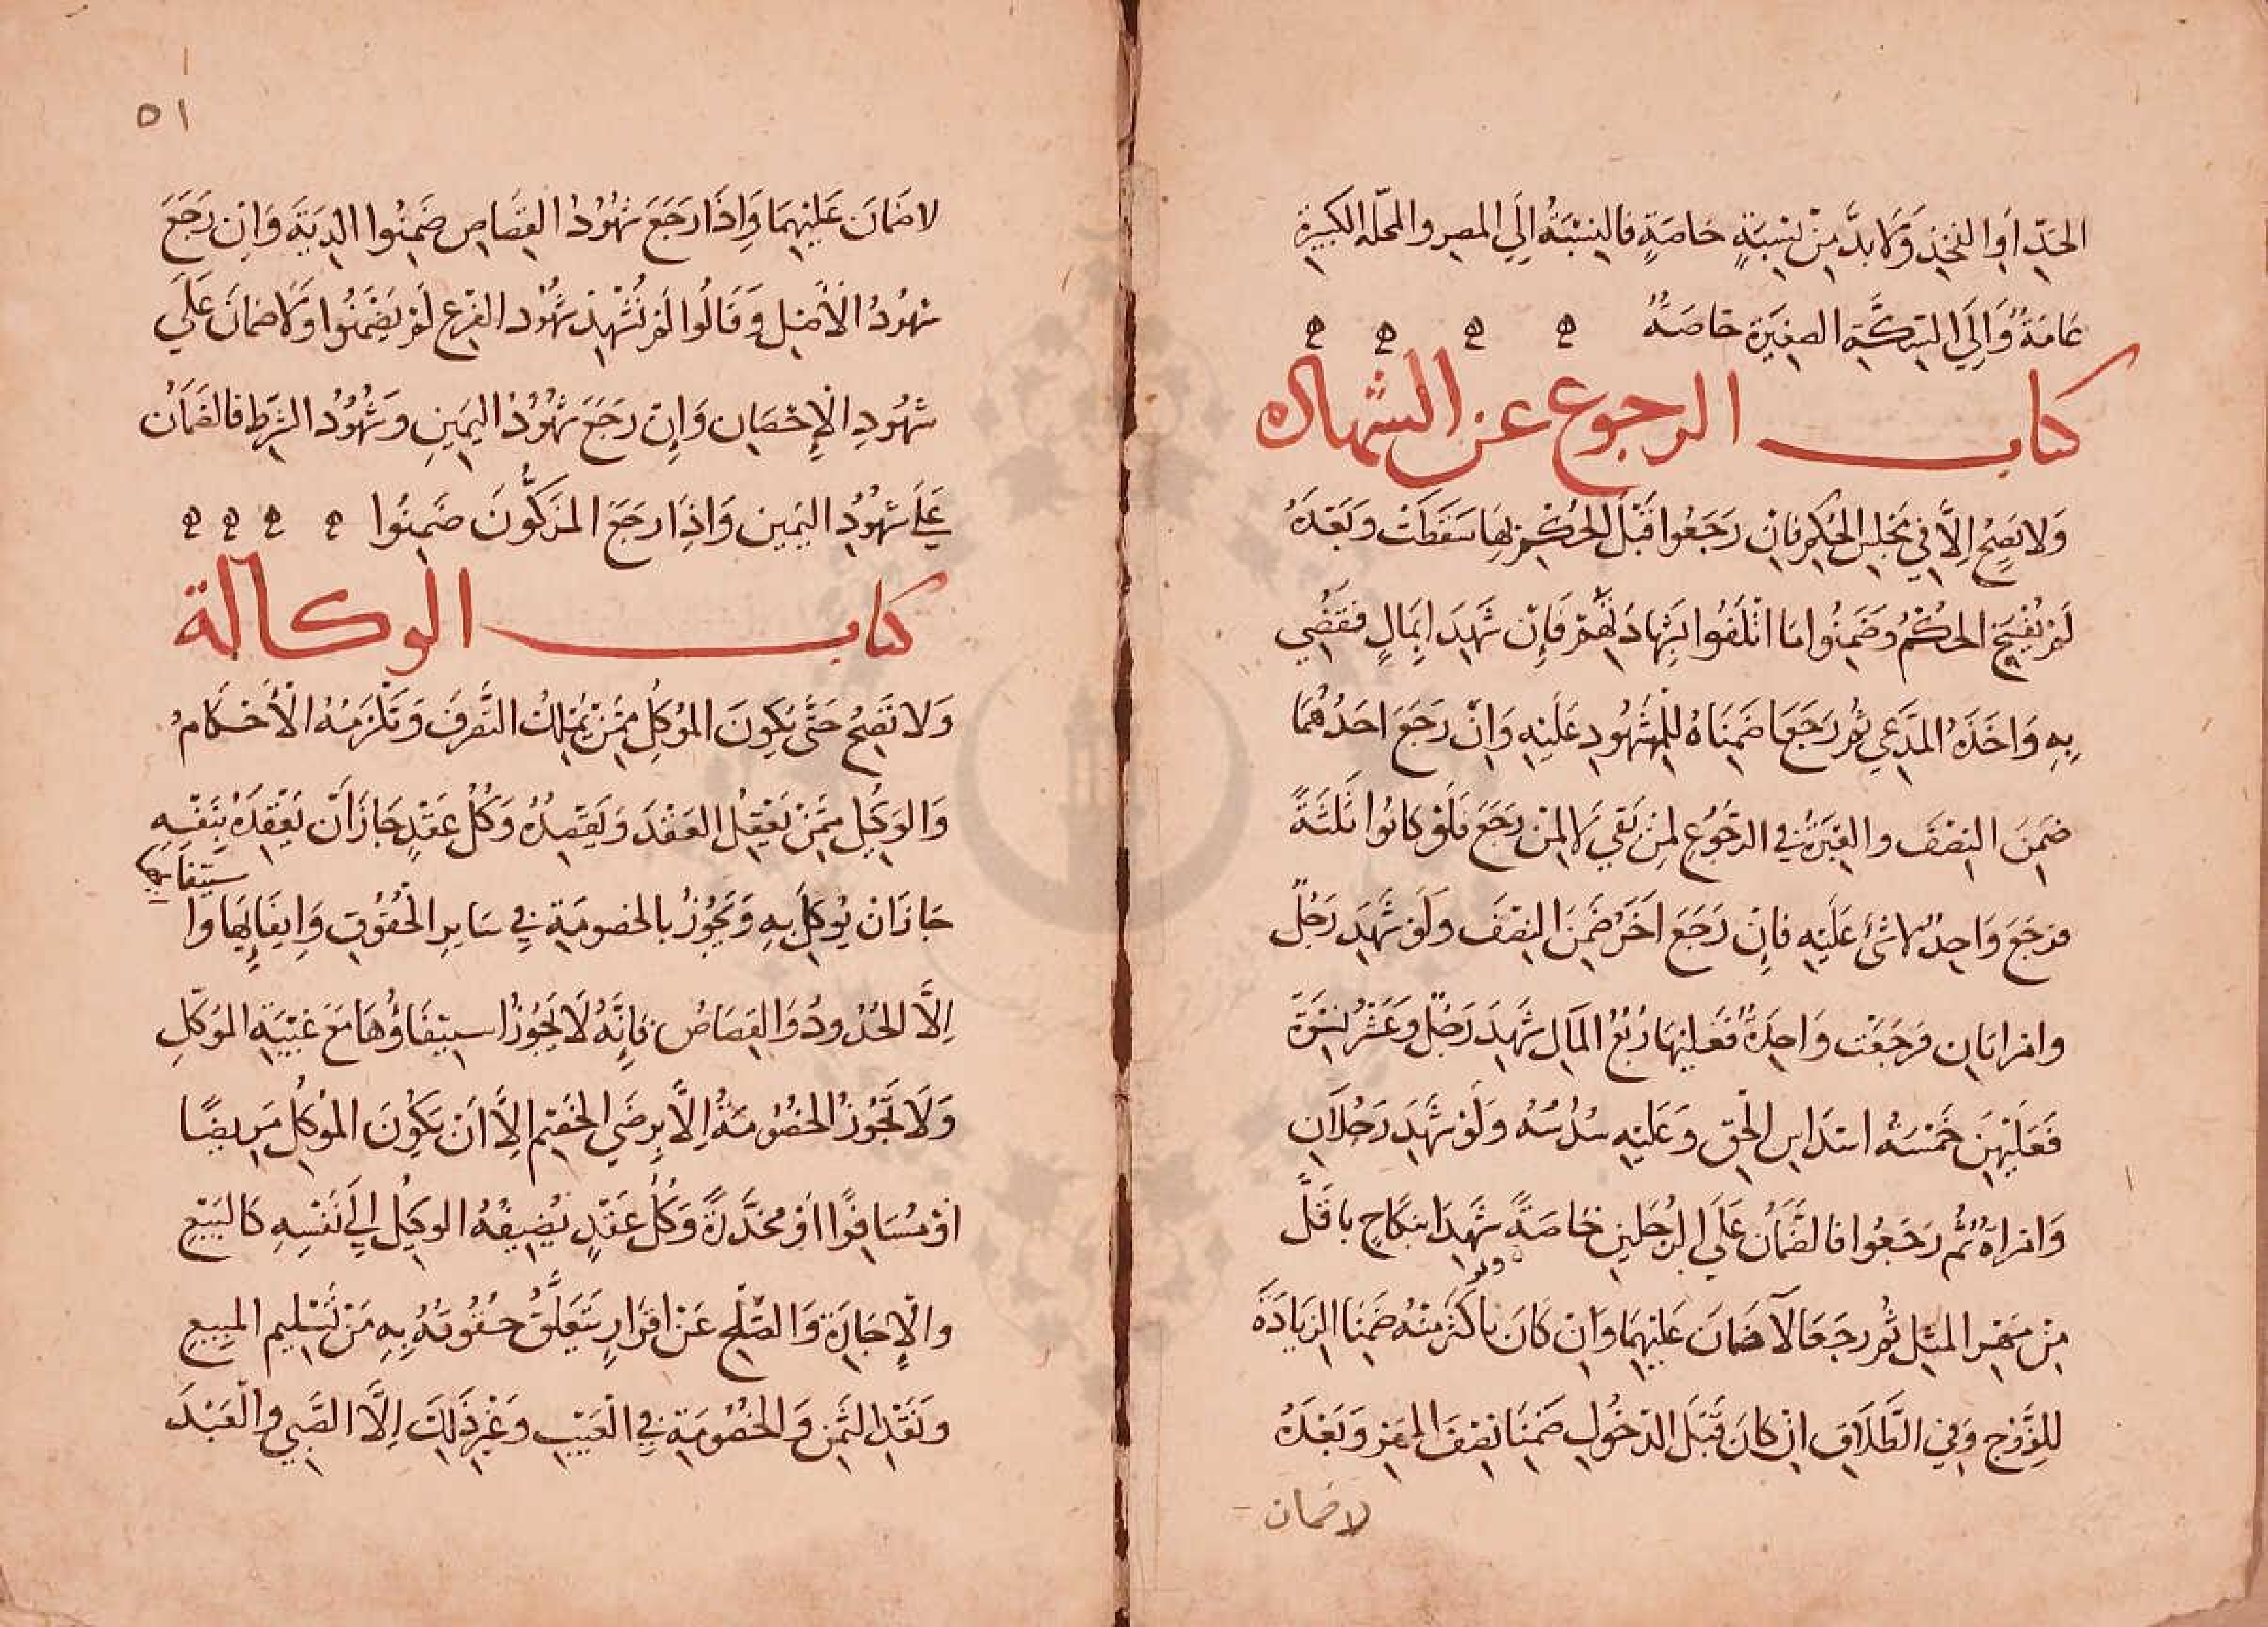 الجَدِّ أَوِ الفَخِذِ وَلَا بدَّ مِنْ نِسْبَةٍ خاصَةٍ فالنِسْبَةُ إلَي المصرِ والمحلّه الكبيرة
عَامَةٌ وَإِلَي السِكَّةِ الصغِيَرة خاصَةٌ
كتاب الرجوع عن الشهادة
وَلا يَصِحُ اِلَّا في مَجْلِسِ الحُكمِ فاِن رَجَعُوا قَبْلَ الحُكْمِ بِهَا سَقَطَتْ وبَعْدَهُ
لَمْ يُفْسَخِ الحكمُ وضَمِنُوا مَا اتْلَفُوا بِشَهادَتِهِمْ فَإِن شَهِدَا بِمَالٍ فقَضُي
بِهِ وَاخَذَهُ المدَّعي ثُمر رَجَعَا ضَمِنَاهُ لِلْمَشْهُودِ عَلَيْهِ وَاِنْ رَجَعَ احَدُهُمَا
ضَمِنَ النِصْفَ والعِبَرةُ في الرجُوعِ لمِنْ بَقي لَا لِمنْ رَجَعَ فَلَوْ كانُوا ثَلثَةً
فرَجَعَ وَاحِدٌ لاشئَ عَلَيْهِ فاِن رَجَعَ اخَرُ ضَمِنَ النِصْفَ ولَوْ شَهِدَ رَجُلٌ
وامراتاِن فرَجَعَت وَاحِدَةٌ فَعَليْهَا رُبْعُ المَال شَهِدَ رَجُلٌ وعَشْرُ نِسْوَة
فَعَلَيْهِنَ خَمْسَةُ اسْدَاسِ الحَقِ وعَلَيْهِ سُدُسُهُ ولَوْ شَهِدَ رَجُلَانِ
وَامْراةٌ ثُمَّ رَجَعُوا فالضَّمَانُ عَلَي الرجُلَينِ خاصَةً شَهِدَا بنكَاحٍ باقَلَّ
ولو
مِنْ مَهْرِ المثِلِ ثُمر رجَعَا لَا ضَمانَ عَلَيْهِمَا وَاِنْ كَانَ باكثَرَ مِنْهُ ضَمِنَا الزيَادَةَ
للِزَّوْجِ وَفي الطَّلَاقِ اِنْ كانَ قَبْلَ الدخُولِ ضَمِنَا نِصْفَ المهْرِ وَبَعْدَهُ
لا ضمان
٥١
لا ضَمانَ عَلَيْهِمَا وَاِذَا رَجَعَ شهُوُدُ القِصَاصِ ضَمِنُوا الدِيَةَ وَاِن رَجَعَ
شهُودُ الْأَصْلِ وقَالُوا لَمْ نُشْهِدْ شهُوْد الفَرْعِ لَمْ يَضْمَنُوا وَلَا ضمانَ عَلَي
شهُودِ الْإِحْصَانِ وَإِنْ رَجَعَ شهُوُدُ اليَمِينِ وَشُهُوُدُ الشرَطِ فالضَمَانُ
عَلَي شهُوُدِ اليَمِين وَاذِا رجَعَ المزَكُّونَ ضَمِنُوا
كتاب الوكالة
وَلا تَصِحُ حَتَّى يَكِونَ المُوكِلُ مِمَّنْ يَمْلِكُ التَّصَرفَ وَتَلْزَمُهُ الْأَحْكَامُ
وَالوَكِيلُ مِمَّنْ يَعْقِلُ العَقْدَ وَيَقْصِدُهُ وَكُلُّ عَقْدٍ جَازَ أَنْ يَعْقِدَهُ بِنَفْسِهِ
جَازَ اَنْ يُوكِلَ بِهِ وَيَجُوُزُ بالخصومَةِ فيِ سَايِرِ الْحُقُوُقِ وَاِيفَائِهَا وا
ستيفائها
اِلَّا الحُدُودُ وَالقِصَاصُ فاِنَّهُ لَا يَجُوُزُ استِيْفَاؤُهَا مَعَ غَيْبَةِ الموَكِّلِ
وَلَا تَجُوزُ الخصُوُمَةُ اِلَّا بِرضَي الخَصْمِ اِلَّا اَنْ يَكُونَ المُوكِلُ مَريضًا
اوْ مُسَافِرًا اَوْ مُخَدَّرَةً وَكُلُّ عَقْدٍ يُضِيفُهُ الوكِيلُ اِلَي نَفْسِهِ كالبَيْعِ
والْإِجَارَةِ وَالصُّلْحِ عَنْ اقْرَارٍ يَتَعَلَّقُ حُقُوُقُهُ بِهِ مَنْ تَسْلِيم المبِيعِ
ونَقْدِ الثمَنِ وَالخصُومَةِ فيِ الْعَيْبِ وغَيْرِ ذَلِكَ اِلَّا الصَّبيِ والْعَبْدَ